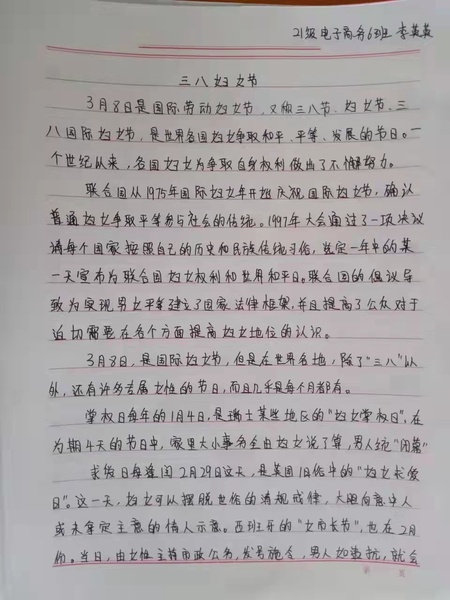 21级电子商务6班 李英英
三八妇女节
3月8日是国际劳动妇女节,又称三八节、妇女节、三
八国际妇女节,是世界各国妇女争取和平、平等、发展的节日。一
个世纪以来,各国妇女为争取自身权利做出了不懈努力。
联合国从1975年国际妇女年开始庆祝国际妇女节,确认
普通妇女争取平等参与社会的传统。1997年大会通过了一项决议
请每个国家按照自己的历史和民族传统习俗,选定一年中的某
一天宣布为联合国妇女权利和世界和平日。联合国的倡议导
致为实现男女平等建立了国家法律框架,并且提高了公众对于
迫切需要在各个方面提高妇女地位的认识。
3月8日,是国际妇女节,但是在世界各地,除了“三八”以
外,还有许多专属女性的节日,而且几乎是每个月都有。
掌权日每年的1月4日,是瑞士某些地区的“妇女掌权日”,在
为期4天的节日中,家里大小事务全由妇女说了算,男人统“闭幕”
求爱日每逢闰2月29日这天,是英国旧俗中的“妇女求爱
日”。这一天,妇女可以摆脱世俗的清规戒律,大胆向意中人
或未拿定主意的情人示意。西班牙的“女市长节”,也在2月
份。当日,由女性主持市政公务,发号施令,男人如骚扰,就会
第 页